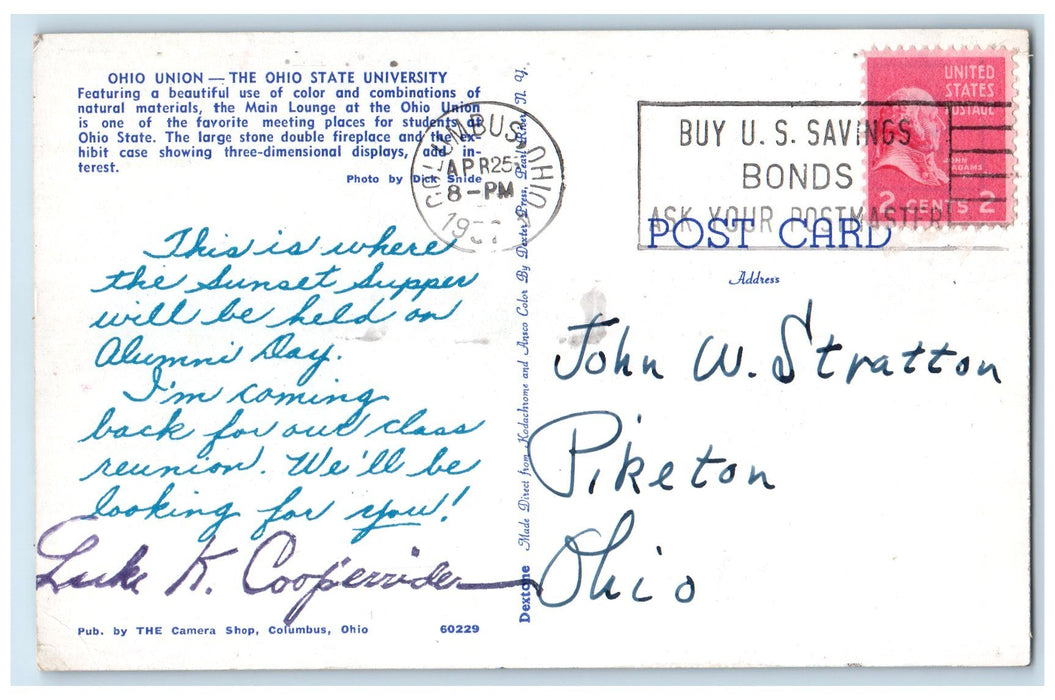 OHIO UNION — THE OHIO STATE UNIVERSITY
Featuring a beautiful use of color and combinations of
natural materials, the Main Lounge at the Ohio Union
is one of the favorite meeting places for students at
Ohio State. The large stone double fireplace and the ex-
hibit case showing three-dimensional displays, add in-
terest.
Photo by Dick Snide
This is where
the Sunset Supper
will be held on
Alumni Day.
I'm coming
back for our class
reunion. We'll be
looking for you!
Luke K. Cooperrider
Pub. by THE Camera Shop, Columbus, Ohio 60229
Dextone Made Direct from Kodachrome and Ansco Color By Dexter Press, Pearl River, N. Y.
COLUMBUS, OHIO
APR 25
8-PM
BUY U. S. SAVINGS
BONDS
ASK YOUR POSTMASTER
UNITED
STATES
POSTAGE
JOHN
ADAMS
2 CENTS 2
POST CARD
Address
John W. Stratton
Piketon
Ohio